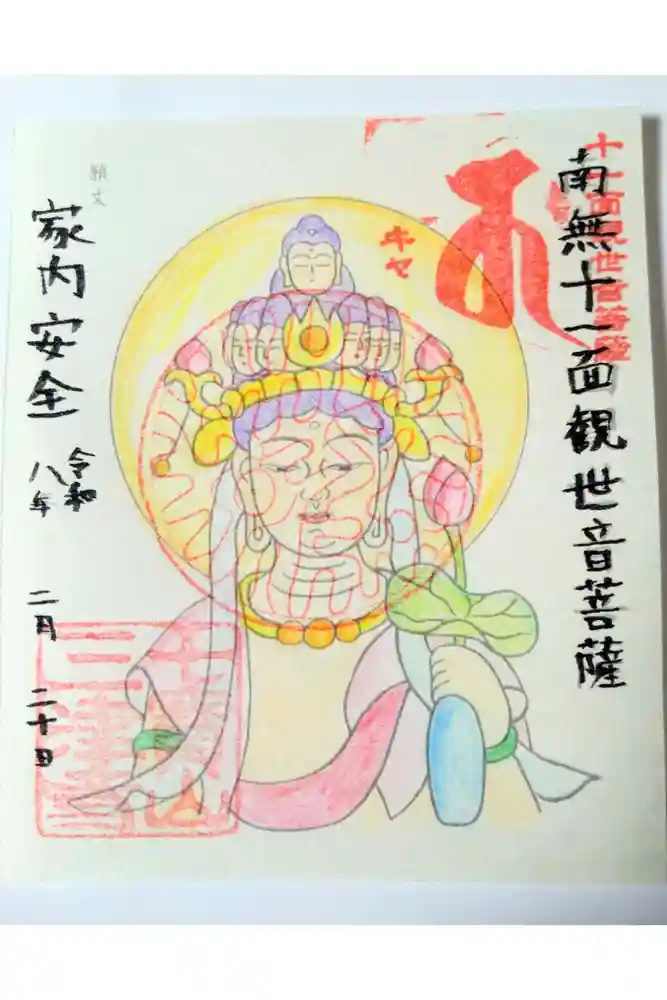 十一面観世音菩薩
南無十一面観世音菩薩
キャ
願文
家内安全
令和
八年
二月
二十日